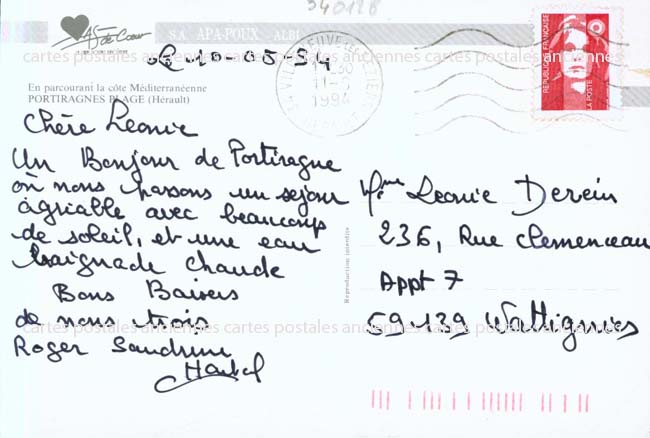 340128
As de Cœur
S.A. APA-POUX ALBI
cartes postales anciennes cartes postales anciennes cartes postales anciennes
Le 10-05 94
1994
RÉPUBLIQUE FRANÇAISE
LA POSTE
En parcourant la côte Méditerranéenne
PORTIRAGNES PLAGE (Hérault)
Chère Leonie
Un Bonjour de Portiragne
où nous passons un sejour
agriable avec beaucoup
de soleil, et une eau
baignade chaude
Bons Baisers
de nous trois
Roger Sandrine
Reproduction interdite
Mme Leonie Derein
236, Rue Clemenceau
Appt 7
59139 Wattignies
cartes postales anciennes cartes postales anciennes cartes postales anciennes